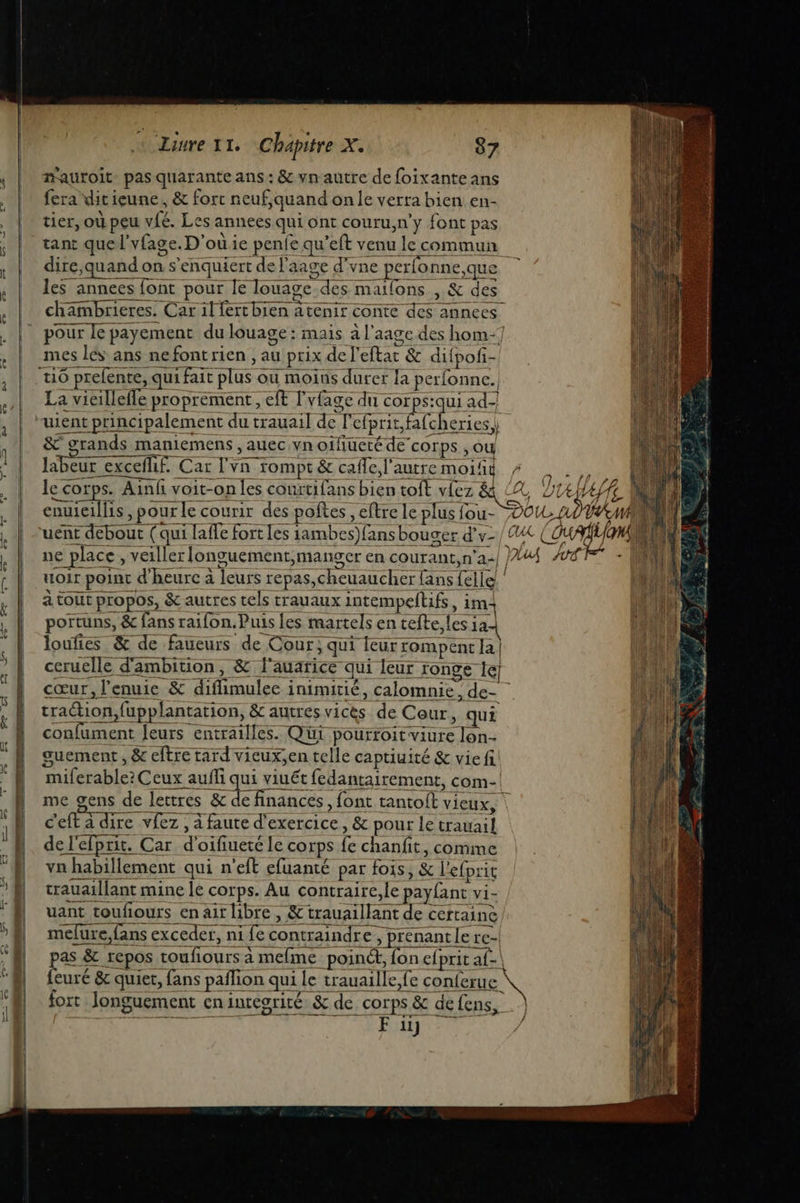 Liure II. Chapitre X. 87
n'auroit pas quarante ans : & vn autre de ſoixante ans
ſera dit ieune, & fort neuf, quand on le verra bien en-
tier, où peu vſé. Les annees qui ont couru, n'y ſont pas
tant que l'vſage. D'où ie penſe qu'eſt venu le commun
dire, quand on s'enquiert de l'aage d'vne perſonne, que
les annees ſont pour le louage des maiſons, & des
chambrieres. Car il ſert bien à tenir conte des annees
pour le payement du louage: mais à l'aage des hom-
mes les ans ne font rien, au prix de l'eſtat & diſpoſi-
tiō preſente, qui fait plus ou moins durer la perſonne.
La vieilleſſe proprement, eſt l'vſage du corps: qui ad-
uient principalement du trauail de l'eſprit, faſcheries,
& grands maniemens, auec vn oiſiueté de corps, ou
labeur exceſſif. Car l'vn rompt & caſſe, l'autre moiſit
le corps. Ainſi voit-on les courtiſans bien toſt vſez &
enuieillis, pour le courir des poſtes, eſtre le plus ſou-
uent debout (qui laſſe fort les iambes) ſans bouger d'v-
ne place, veiller longuement, manger en courant, n'a-
uoir point d'heure à leurs repas, cheuaucher ſans ſelle
à tout propos, & autres tels trauaux intempeſtifs, im-
portuns, & ſans raiſon. Puis les martels en teſte, les ia-
louſies & de faueurs de Cour; qui leur rompent la
ceruelle d'ambition, & l'auarice qui leur ronge le
cœur, l'enuie & diſſimulee inimitié, calomnie, de-
traction, ſupplantation, & autres vices de Cour, qui
conſument leurs entrailles. Qui pourroit viure lon-
guement, & eſtre tard vieux, en telle captiuité & vie ſi
miſerable? Ceux auſſi qui viuēt ſedantairement, com-
me gens de lettres & de finances, ſont tantoſt vieux,
c'eſt à dire vſez, à faute d'exercice, & pour le trauail
de l'eſprit. Car d'oiſiueté le corps ſe chanſit, comme
vn habillement qui n'eſt eſuanté par fois, & l'eſprit
trauaillant mine le corps. Au contraire, le payſant vi-
uant touſiours en air libre, & trauaillant de certaine
meſure, ſans exceder, ni ſe contraindre, prenant le re-
pas & repos touſiours à meſme poinct, ſon eſprit aſ-
ſeuré & quiet, ſans paſſion qui le trauaille, ſe conſerue
fort longuement en integrité & de corps & de ſens,
F iij